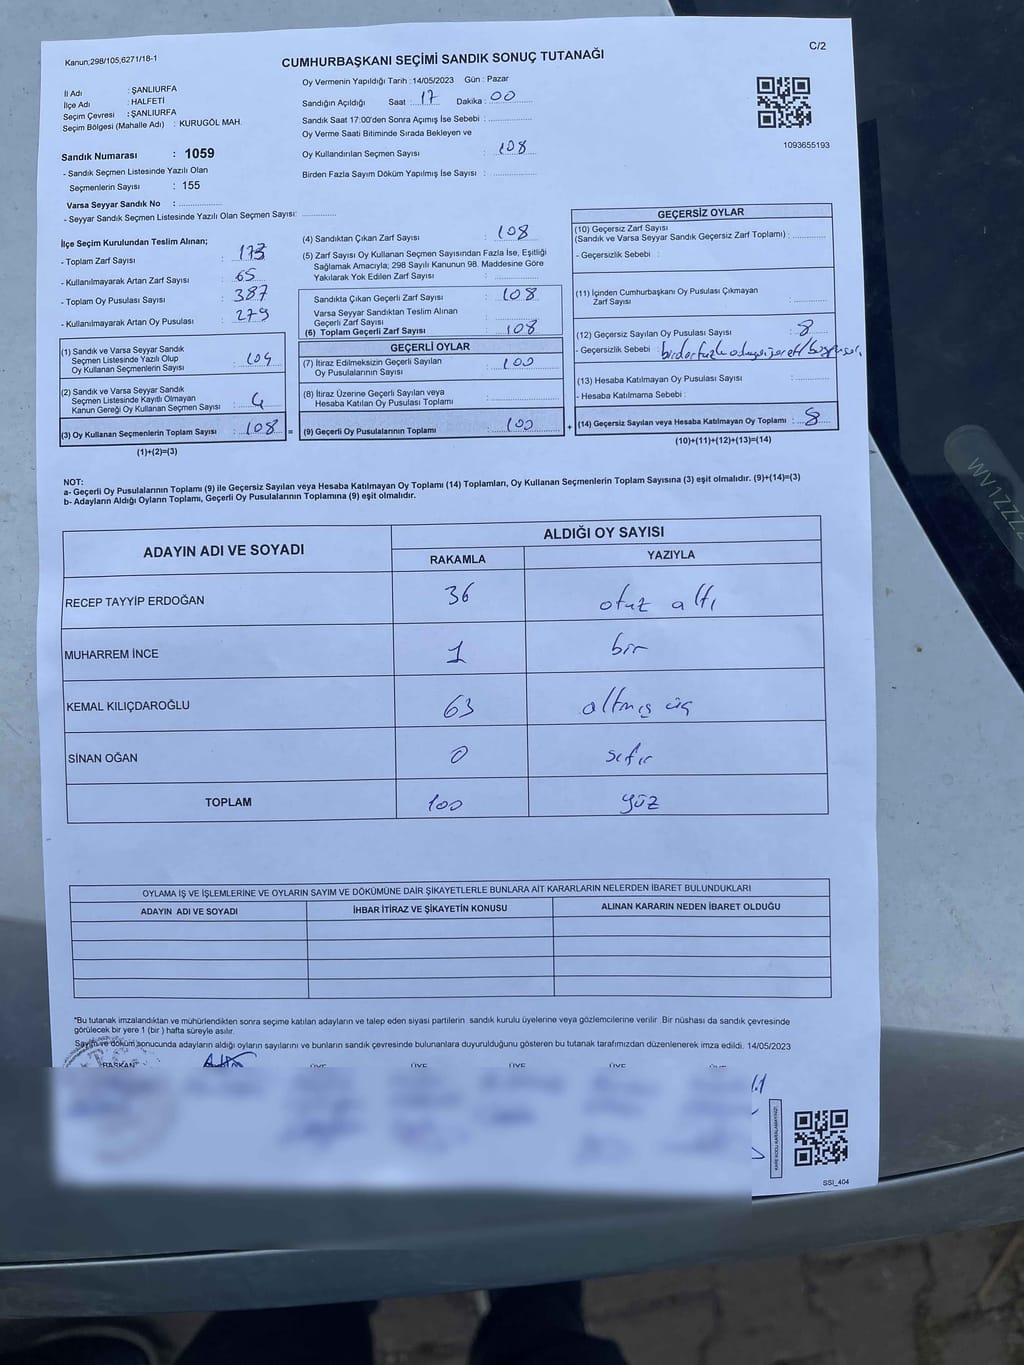 Kanun;298/105,6271/18-1
CUMHURBAŞKANI SEÇİMİ SANDIK SONUÇ TUTANAĞI
C/2
İl Adı : ŞANLIURFA
İlçe Adı : HALFETİ
Seçim Çevresi : ŞANLIURFA
Seçim Bölgesi (Mahalle Adı) : KURUGÖL MAH.
Sandık Numarası : 1059
- Sandık Seçmen Listesinde Yazılı Olan
Seçmenlerin Sayısı : 155
Varsa Seyyar Sandık No :
- Seyyar Sandık Seçmen Listesinde Yazılı Olan Seçmen Sayısı:
Oy Vermenin Yapıldığı Tarih : 14/05/2023 Gün : Pazar
Sandığın Açıldığı Saat : 17 Dakika : 00
Sandık Saat 17:00'den Sonra Açımış İse Sebebi :
Oy Verme Saati Bitiminde Sırada Bekleyen ve
Oy Kullandırılan Seçmen Sayısı : 108
Birden Fazla Sayım Döküm Yapılmış İse Sayısı :
1093655193
İlçe Seçim Kurulundan Teslim Alınan;
- Toplam Zarf Sayısı : 173
- Kullanılmayarak Artan Zarf Sayısı : 65
- Toplam Oy Pusulası Sayısı : 387
- Kullanılmayarak Artan Oy Pusulası : 279
(1) Sandık ve Varsa Seyyar Sandık
Seçmen Listesinde Yazılı Olup
Oy Kullanan Seçmenlerin Sayısı : 104
(2) Sandık ve Varsa Seyyar Sandık
Seçmen Listesinde Kayıtlı Olmayan
Kanun Gereği Oy Kullanan Seçmen Sayısı : 4
(3) Oy Kullanan Seçmenlerin Toplam Sayısı : 108 =
(1)+(2)=(3)
(4) Sandıktan Çıkan Zarf Sayısı : 108
(5) Zarf Sayısı Oy Kullanan Seçmen Sayısından Fazla İse, Eşitliği
Sağlamak Amacıyla; 298 Sayılı Kanunun 98. Maddesine Göre
Yakılarak Yok Edilen Zarf Sayısı :
Sandıkta Çıkan Geçerli Zarf Sayısı : 108
Varsa Seyyar Sandıktan Teslim Alınan
Geçerli Zarf Sayısı :
(6) Toplam Geçerli Zarf Sayısı : 108
GEÇERLİ OYLAR
(7) İtiraz Edilmeksizin Geçerli Sayılan
Oy Pusulalarının Sayısı : 100
(8) İtiraz Üzerine Geçerli Sayılan veya
Hesaba Katılan Oy Pusulası Toplamı :
(9) Geçerli Oy Pusulalarının Toplamı : 100 +
GEÇERSİZ OYLAR
(10) Geçersiz Zarf Sayısı
(Sandık ve Varsa Seyyar Sandık Geçersiz Zarf Toplamı) :
- Geçersizlik Sebebi :
(11) İçinden Cumhurbaşkanı Oy Pusulası Çıkmayan
Zarf Sayısı :
(12) Geçersiz Sayılan Oy Pusulası Sayısı : 8
- Geçersizlik Sebebi :
(13) Hesaba Katılmayan Oy Pusulası Sayısı :
- Hesaba Katılmama Sebebi :
(14) Geçersiz Sayılan veya Hesaba Katılmayan Oy Toplamı : 8
(10)+(11)+(12)+(13)=(14)
NOT:
a- Geçerli Oy Pusulalarının Toplamı (9) ile Geçersiz Sayılan veya Hesaba Katılmayan Oy Toplamı (14) Toplamları, Oy Kullanan Seçmenlerin Toplam Sayısına (3) eşit olmalıdır. (9)+(14)=(3)
b- Adayların Aldığı Oyların Toplamı, Geçerli Oy Pusulalarının Toplamına (9) eşit olmalıdır.
ADAYIN ADI VE SOYADI
ALDIĞI OY SAYISI
RAKAMLA YAZIYLA
RECEP TAYYİP ERDOĞAN 36 otuz altı
MUHARREM İNCE 1 bir
KEMAL KILIÇDAROĞLU 63 altmış üç
SİNAN OĞAN 0 sıfır
TOPLAM 100 yüz
OYLAMA İŞ VE İŞLEMLERİNE VE OYLARIN SAYIM VE DÖKÜMÜNE DAİR ŞİKAYETLERLE BUNLARA AİT KARARLARIN NELERDEN İBARET BULUNDUKLARI
ADAYIN ADI VE SOYADI İHBAR İTİRAZ VE ŞİKAYETİN KONUSU ALINAN KARARIN NEDEN İBARET OLDUĞU
*Bu tutanak imzalandıktan ve mühürlendikten sonra seçime katılan adayların ve talep eden siyasi partilerin sandık kurulu üyelerine veya gözlemcilerine verilir. Bir nüshası da sandık çevresinde
görülecek bir yere 1 (bir) hafta süreyle asılır.
Sayım ve döküm sonucunda adayların aldığı oyların sayılarını ve bunların sandık çevresinde bulunanlara duyurulduğunu gösteren bu tutanak tarafımızdan düzenlenerek imza edildi. 14/05/2023
BAŞKAN ÜYE ÜYE ÜYE ÜYE ÜYE
SSİ_404
WV1ZZZ